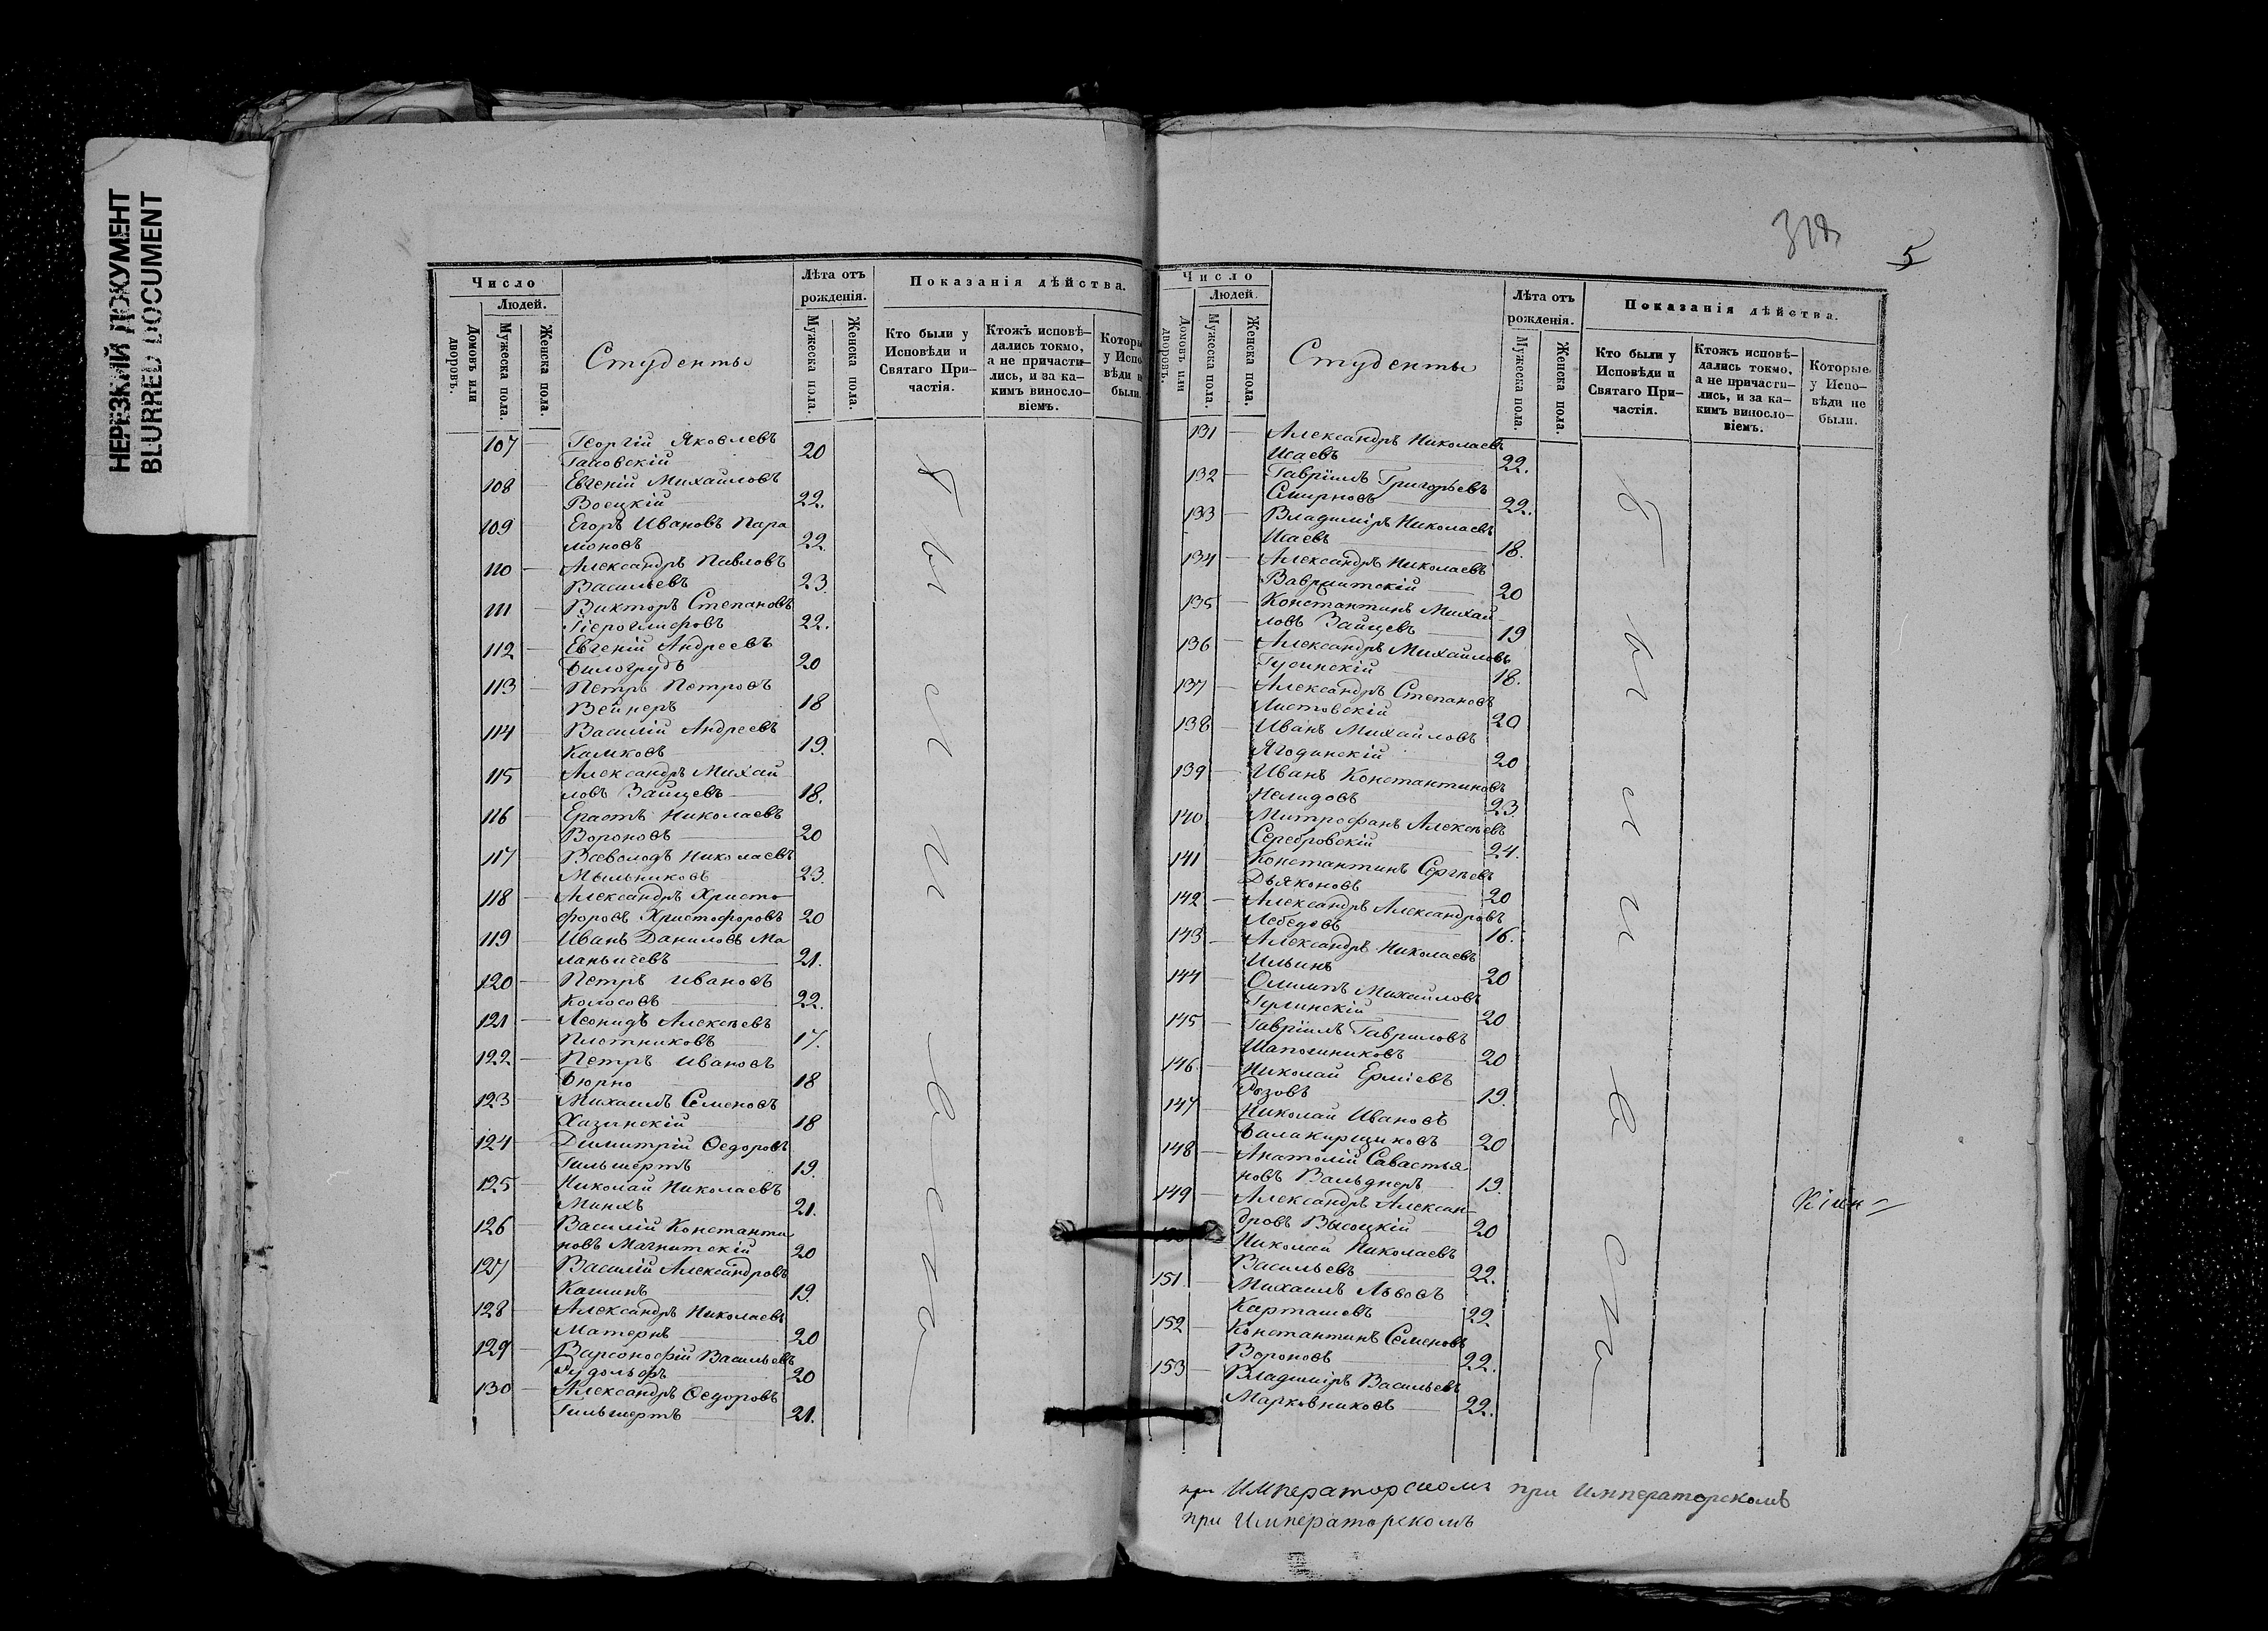 НЕРЕЗКИЙ ДОКУМЕНТ
BLURRED DOCUMENT
Число
Людей.
Домовъ или дворовъ.
Мужеска пола.
Женска пола.
Студенты
Лѣта отъ рожденія.
Мужеска пола.
Женска пола.
Показанія дѣйства.
Кто были у Исповѣди и Святаго Причастія.
Ктожъ исповѣдались токмо, а не причастились, и за какимъ винословіемъ.
107 — Георгій Яковлевъ
20
108 — Евгеній Михайловъ
Воецкій 22.
109 Егоръ Ивановъ Пара
моновъ 22.
110 — Александръ Павловъ
Васильевъ 23.
111 — Викторъ Степановъ
Гіероглифовъ 22.
112 — Евгеній Андреевъ
Билогрудъ 20
113 — Петръ Петровъ
Вейнеръ 18
114 — Василій Андреевъ
Калмковъ 19.
115 — Александръ Михай
ловъ Зайцевъ 18.
116 — Ерастъ Николаевъ
Вороновъ 20
117 — Всеволодъ Николаевъ
Мыльниковъ 23.
118 — Александръ Христо
форовъ Христофоровъ 20
119 — Иванъ Даниловъ Ма
ланьичевъ 21.
120 — Петръ Ивановъ
Колосовъ 22.
121 — Леонидъ Алексѣевъ
Плотниковъ 17.
122 — Петръ Ивановъ
Бюрно 18
123 — Михаилъ Семеновъ
Хазинскій 18
124 — Димитрій Ѳедоровъ
Гильшертъ 19.
125 — Николай Николаевъ
Минхъ 21.
126 — Василій Константи
новъ Магнитскій 20
127 — Василій Александровъ
Кашинъ 19.
128 — Александръ Николаевъ
Матернъ 20
129 — Варсонофій Васильевъ
Рудольфъ 20
130 — Александръ Ѳедоровъ
Гильшертъ 21.
были у
318
5
Число
Людей.
Домовъ или дворовъ.
Мужеска пола.
Женска пола.
Студенты
Лѣта отъ рожденія.
Мужеска пола.
Женска пола.
Показанія дѣйства.
Кто были у Исповѣди и Святаго Причастія.
Ктожъ исповѣдались токмо, а не причастились, и за какимъ винословіемъ.
Которые у Исповѣди не были.
131 — Александръ Николаевъ
Исаевъ 22.
132 — Гавріилъ Григорьевъ
Смирновъ 22.
133 — Владиміръ Николаевъ
Исаевъ 18.
134 — Александръ Николаевъ
20
135 — Константинъ Михай
ловъ Зайцевъ 19
136 — Александръ Михайловъ
Гусинскій 18.
137 — Александръ Степановъ
Листовскій 20
138 — Иванъ Михайловъ
Ягодинскій 20
139 — Иванъ Константиновъ
Нелидовъ 23.
140 — Митрофанъ Алексѣевъ
Серебровскій 24.
141 — Константинъ Сергѣевъ
Дьяконовъ 20
142 — Александръ Александровъ
Лебедевъ 16.
143 — Александръ Николаевъ
Ильинъ 20
144 — Олимпъ Михайловъ
Гулинскій 20
145 — Гавріилъ Гавриловъ
Шапошниковъ 20
146 — Николай Ерміевъ
Розовъ 19.
147 — Николай Ивановъ
Балакирщиковъ 20
148 — Анатолій Савастья
новъ Вальднеръ 19.
149 — Александръ Алексан
дровъ Высоцкій 20
Николай Николаевъ
Васильевъ 22.
151 — Михаилъ Львовъ
Карташовъ 22
152 — Константинъ Семеновъ
Вороновъ 22.
153 — Владиміръ Васильевъ
Марковниковъ 22.
при Императорскомъ при Императорскомъ
при Императорскомъ